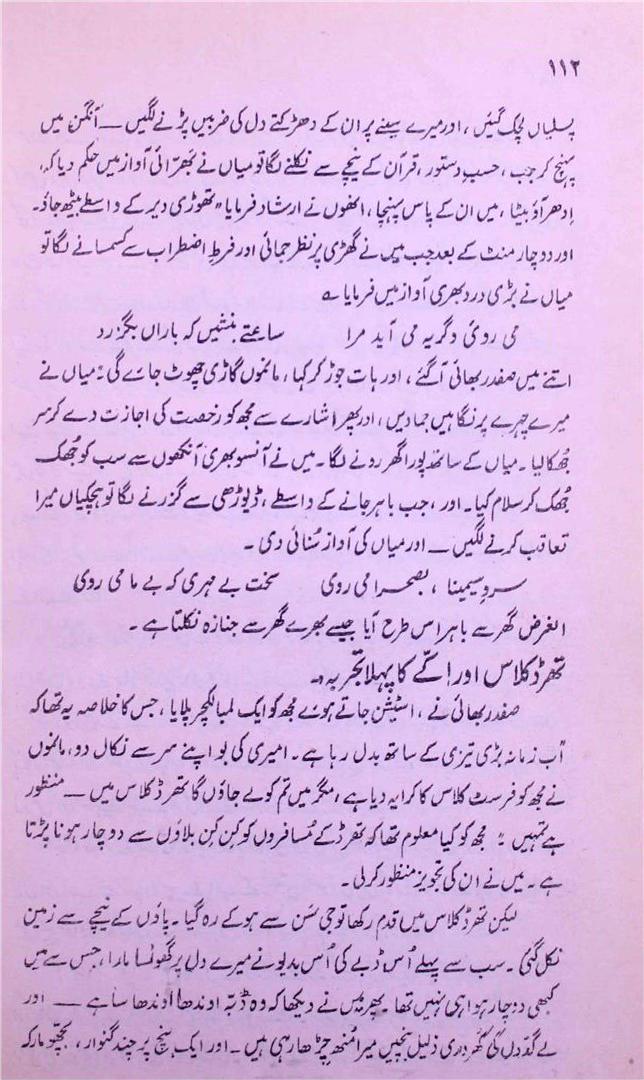 ۱۱۲
پسلیاں لچک گئیں، اور میرے سینے پر ان کے دھڑکتے دل کی ضربیں پڑنے لگیں — آنگن میں
پہنچ کر جب، حسبِ دستور، قرآن کے نیچے سے نکلنے لگا تو میاں نے بھرّائی آواز میں حکم دیا کہ،
اِدھر آؤ بیٹا، میں ان کے پاس پہنچا، انھوں نے ارشاد فرمایا "تھوڑی دیر کے واسطے بیٹھ جاؤ۔
اور دوچار منٹ کے بعد جب میں نے گھڑی پر نظر جمائی اور فرطِ اضطراب سے کسمسانے لگا تو
میاں نے بڑی درد بھری آواز میں فرمایا ؎
می روی و گریہ می آید مرا ساعتے بنشیں کہ باراں بگزرد
اتنے میں صفدر بھائی آگئے، اور ہات جوڑ کر کہا، ماموں گاڑی چھوٹ جائے گی؛ میاں نے
میرے چہرے پر نگاہیں جمادیں، اور پھر اشارے سے مجھ کو رخصت کی اجازت دے کر سر
جُھکالیا۔ میاں کے ساتھ پورا گھر رونے لگا۔ میں نے آنسو بھری آنکھوں سے سب کو جُھک
جُھک کر سلام کیا۔ اور، جب باہر جانے کے واسطے، ڈیوڑھی سے گزرنے لگا تو ہچکیاں میرا
تعاقب کرنے لگیں — اور میاں کی آواز سُنائی دی۔
سروِ سیمینا، بصحرا می روی سخت بے مہری کہ بے ما می روی
الغرض گھر سے باہر اس طرح آیا جیسے بھرے گھر سے جنازہ نکلتا ہے۔
تھرڈ کلاس اور اِکّے کا پہلا تجربہ؞
صفدر بھائی نے، اسٹیشن جاتے ہوئے مجھ کو ایک لمبا لکچر پلایا، جس کا خلاصہ یہ تھا کہ
اَب زمانہ بڑی تیزی کے ساتھ بدل رہا ہے۔ امیری کی بو اپنے سر سے نکال دو، ماموں
نے مجھ کو فرسٹ کلاس کا کرایہ دیا ہے، مگر میں تم کو لے جاؤں گا تھرڈ کلاس میں — منظور
ہے تمہیں؛" مجھ کو کیا معلوم تھا کہ تھرڈ کے مُسافروں کو کِن کِن بلاؤں سے دوچار ہونا پڑتا
ہے۔ میں نے ان کی تجویز منظور کرلی۔
لیکن تھرڈ کلاس میں قدم رکھا تو جی سَن سے ہو کے رہ گیا۔ پاؤں کے نیچے سے زمین
نکل گئی۔ سب سے پہلے اُس ڈبے کی اُس بدبو نے میرے دل پر گھونسا مارا، جس سے میں
کبھی دوچار ہوا ہی نہیں تھا۔ پھر میں نے دیکھا کہ وہ ڈبّہ اوندھا اوندھا سا ہے — اور
بے گدّوں کی کُھرّدری ذلیل بنچیں میرا مُنھ چڑھا رہی ہیں۔ اور ایک بنچ پر چند گنوار، بُچّو مار کہ